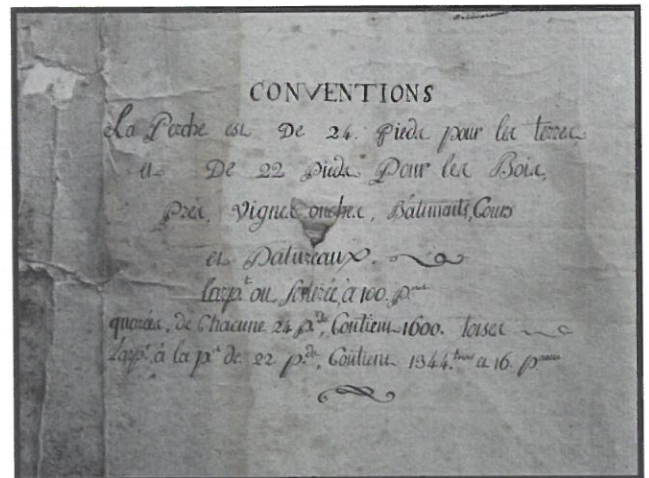 CONVENTIONS
La Perche est De 24. Pieds pour les terres
et De 22 pieds Pour les Bois,
prés, vignes ouches, Bâtiments, Cours
et Patureaux.
l'arp.t ou séterée, à 100. p.
quarées, de Chacune 24 p.ds, Contient 1600. toises
l'arp.t à la p. de 22 p.ds, Contient 1344. et 16. p.